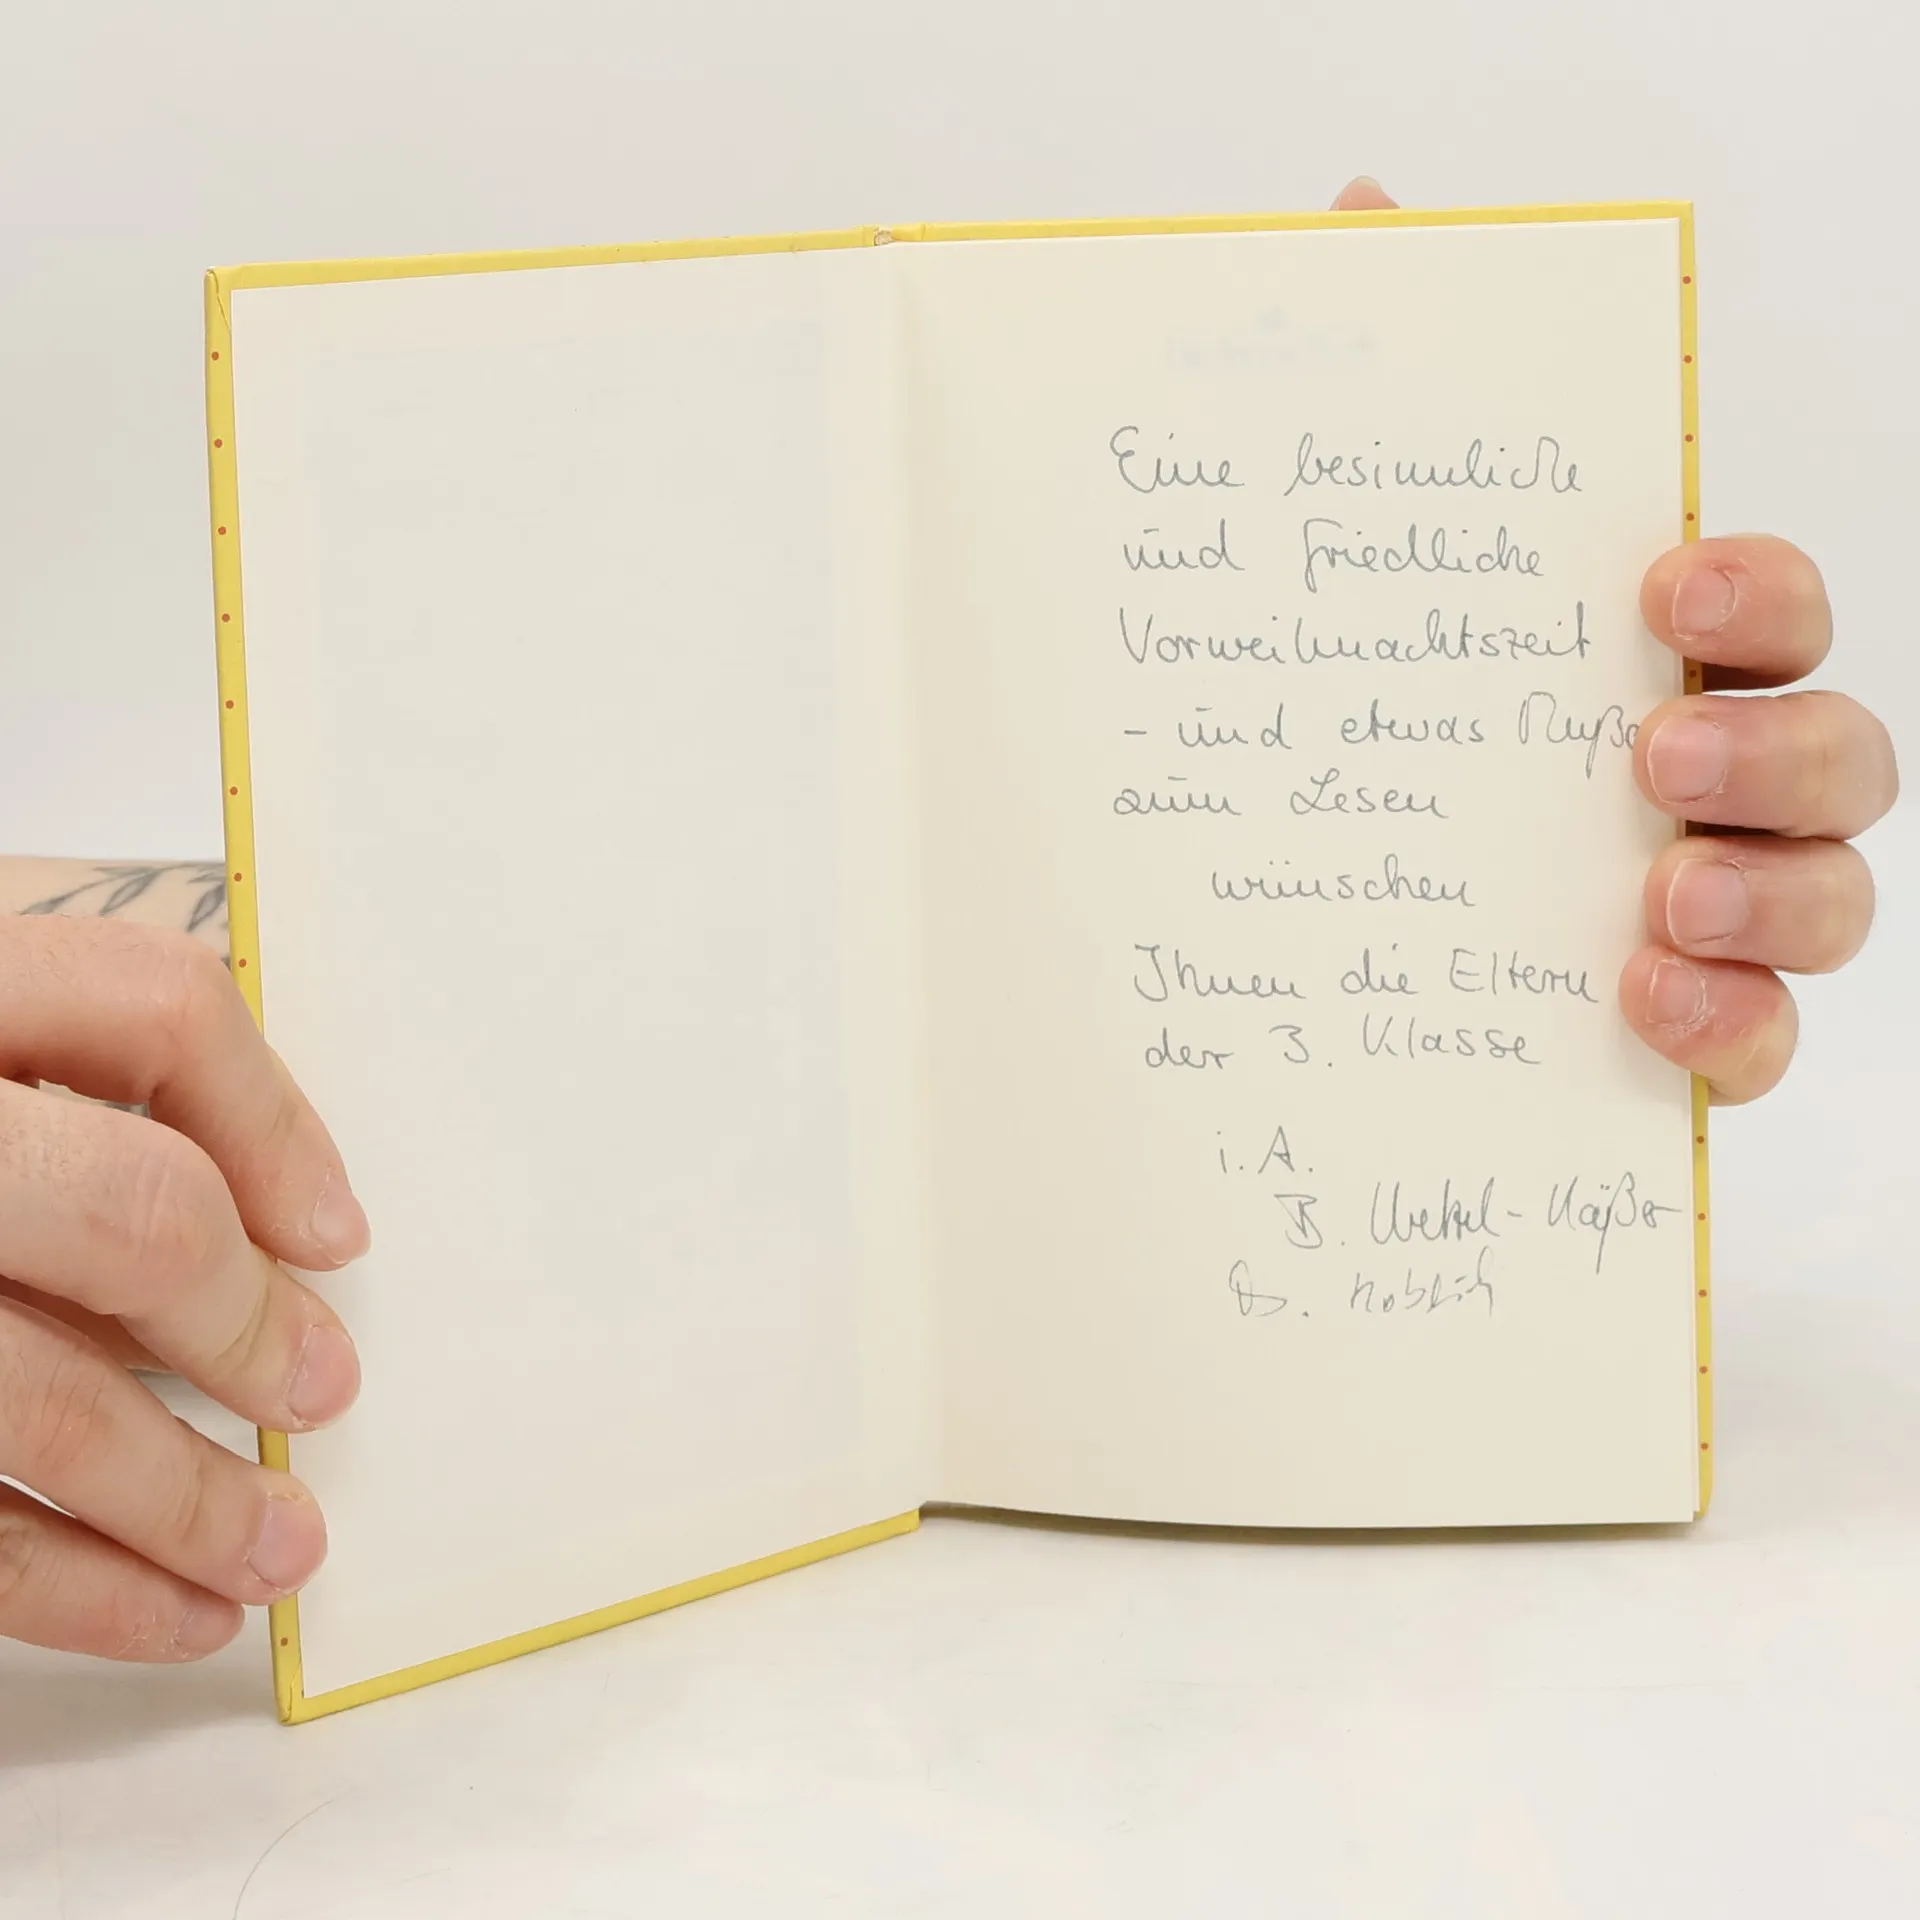 Eine besinnliche
und friedliche
Vorweihnachtszeit
- und etwas Muße
zum Lesen
wünschen
Ihnen die Eltern
der 3. Klasse
i. A.
B.